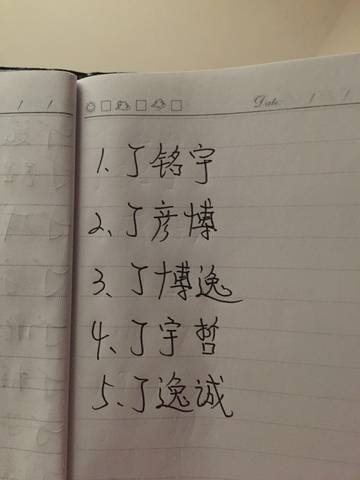 Date / /
/ /
1、丁铭宇
2、丁彦博
3、丁博逸
4、丁宇哲
5、丁逸诚